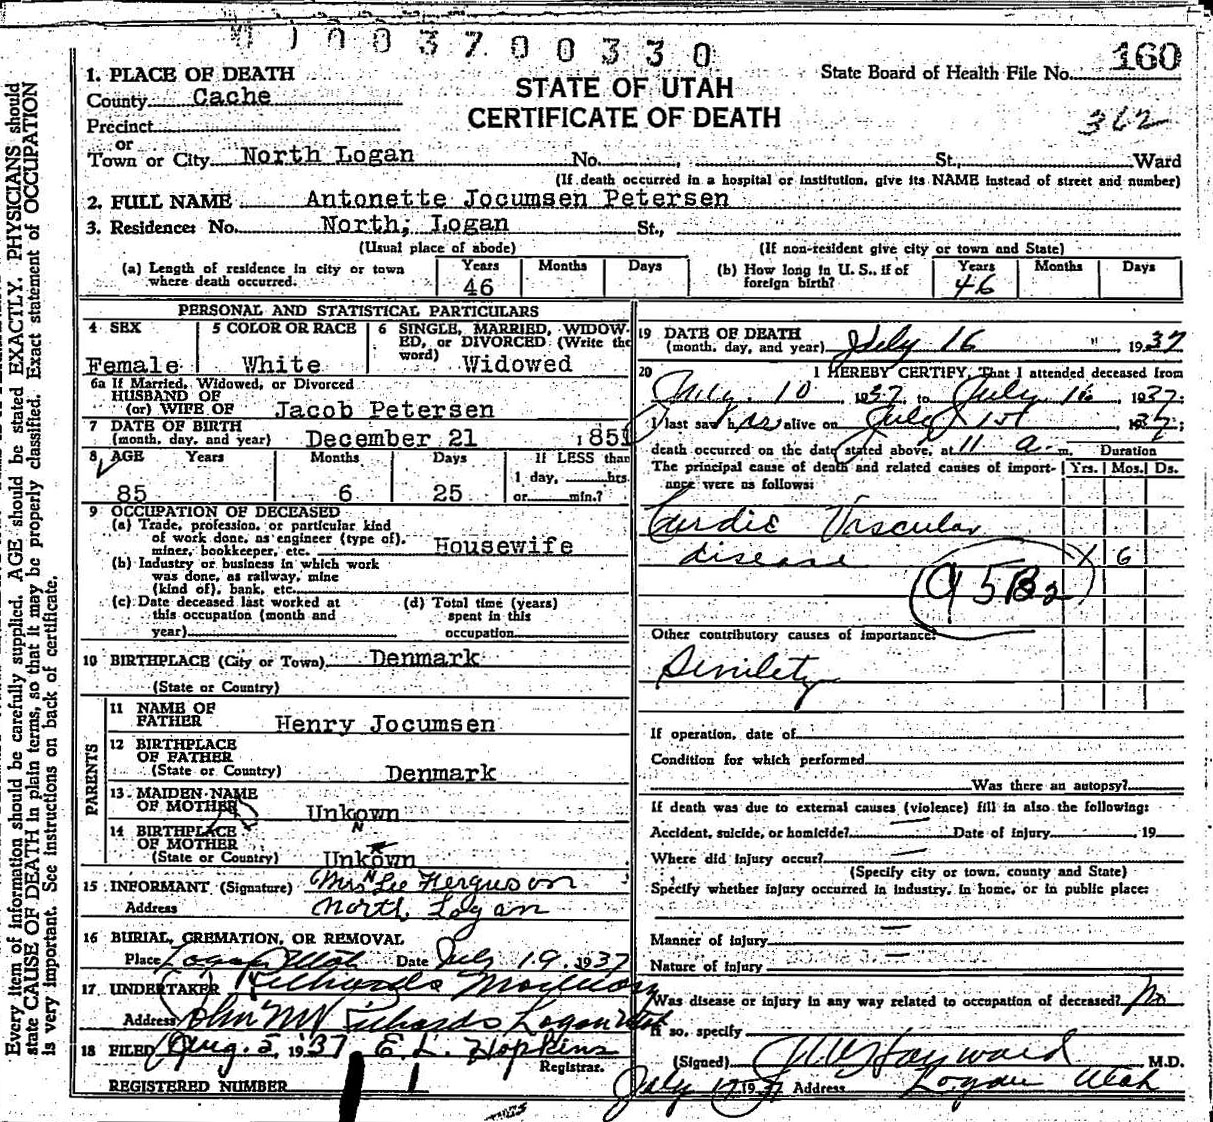 0 0 3 7 0 0 3 3 0
160
1. PLACE OF DEATH
County Cache
STATE OF UTAH
State Board of Health File No.
CERTIFICATE OF DEATH
362
Precinct
or
Town or City North Logan No. , St., Ward
(If death occurred in a hospital or institution, give its NAME instead of street and number)
2. FULL NAME Antonette Jocumsen Petersen
3. Residence: No. North; Logan St.,
(Usual place of abode) (If non-resident give city or town and State)
(a) Length of residence in city or town where death occurred. Years 46 Months Days
(b) How long in U. S., if of foreign birth? Years 46 Months Days
PERSONAL AND STATISTICAL PARTICULARS
4 SEX Female
5 COLOR OR RACE White
6 SINGLE, MARRIED, WIDOW-
ED, or DIVORCED (Write the
word) Widowed
6a If Married, Widowed, or Divorced
HUSBAND OF
(or) WIFE OF Jacob Petersen
7 DATE OF BIRTH
(month, day, and year) December 21 1851
8 AGE Years Months Days If LESS than
1 day, hrs.
85 6 25 or min.?
9 OCCUPATION OF DECEASED
(a) Trade, profession, or particular kind
of work done, as engineer (type of),
miner, bookkeeper, etc. Housewife
(b) Industry or business in which work
was done, as railway, mine
(kind of), bank, etc.
(c) Date deceased last worked at
this occupation (month and
year)
(d) Total time (years)
spent in this
occupation
10 BIRTHPLACE (City or Town) Denmark
(State or Country)
PARENTS
11 NAME OF
FATHER Henry Jocumsen
12 BIRTHPLACE
OF FATHER
(State or Country) Denmark
13 MAIDEN NAME
OF MOTHER Unkown
N
14 BIRTHPLACE
OF MOTHER
(State or Country) Unkown
N
15 INFORMANT (Signature) Mrs Lee Ferguson
Address North Logan
16 BURIAL, CREMATION, OR REMOVAL
Place Logan Utah Date July 19 1937
17 UNDERTAKER Richards Mortuary
Address John W Richards Logan Utah
18 FILED Aug. 2, 1937 E. L. Hopkins
Registrar.
REGISTERED NUMBER 1
19 DATE OF DEATH
(month, day, and year) July 16 1937
20 I HEREBY CERTIFY, That I attended deceased from
July 10 1937 to July 16, 1937;
I last saw her alive on July 15, 1937;
death occurred on the date stated above, at 11 a. m. Duration
The principal cause of death and related causes of import-
ance were as follows: Yrs. Mos. Ds.
Cardic Vascular
disease 6
95B2
Other contributory causes of importance:
Senilety
If operation, date of
Condition for which performed
Was there an autopsy?
If death was due to external causes (violence) fill in also the following:
Accident, suicide, or homicide? Date of injury , 19
Where did injury occur?
(Specify city or town, county and State)
Specify whether injury occurred in industry, in home, or in public place:
Manner of injury
Nature of injury
Was disease or injury in any way related to occupation of deceased? No
If so, specify
(Signed) Hayward M.D.
July 17 1937 Address Logan Utah
Every item of information should be carefully supplied. AGE should be stated EXACTLY. PHYSICIANS should
state CAUSE OF DEATH in plain terms, so that it may be properly classified. Exact statement of OCCUPATION
is very important. See instructions on back of certificate.